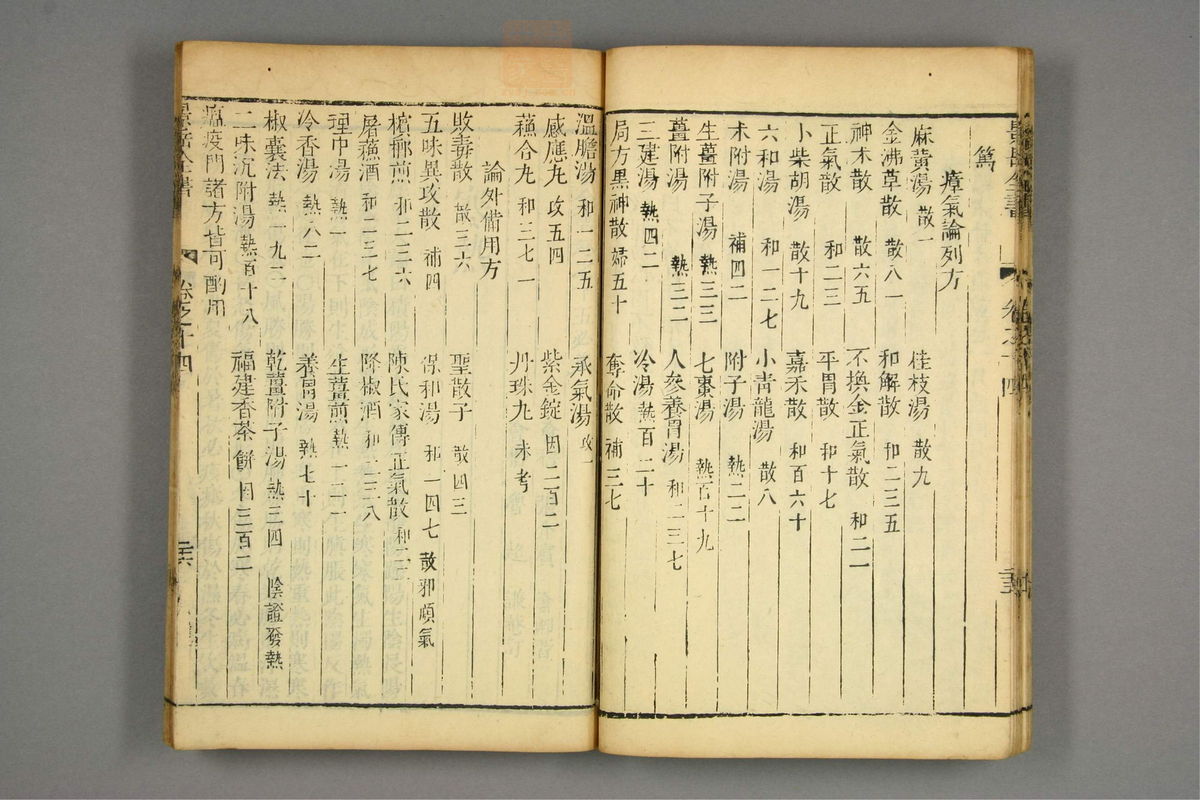 景岳全書 卷之十四
篤
瘴氣論列方
麻黃湯 散一 桂枝湯 散九
金沸草散 散八一 和解散 和二三五
神术散 散六五 不換金正氣散 和二一
正氣散 和二三 平胃散 和十七
小柴胡湯 散十九 嘉禾散 和百六十
六和湯 和一二七 小青龍湯 散八
术附湯 補四二 附子湯 熱二二
生薑附子湯 熱三三 七棗湯 熱百十九
薑附湯 熱三二 人參養胃湯 和二三七
三建湯 熱四二 冷湯 熱百二十
局方黑神散 婦五十 奪命散 補三七
溫膽湯 和一二五 承氣湯 攻一
感應九 攻五四 紫金錠 因二百二
蘇合九 和三七一 丹珠九 未考
論外備用方
敗毒散 散三六 聖散子 散四三
五味異攻散 補四 保和湯 和一四七 散邪顺氣
檳榔煎 和二三六 陳氏家傳正氣散 和二三
屠蘇酒 和二三七 降椒酒 和二三八
理中湯 熱一 生薑煎 熱一二一
冷香湯 熱八二 養胃湯 熱七十
椒囊法 熱一九二 乾薑附子湯 熱三四 陰證發熱
二味沉附湯 熱百十八 福建香茶餅 因三百二
瘟疫門諸方皆可酌用
景岳全書 卷之十四 二六